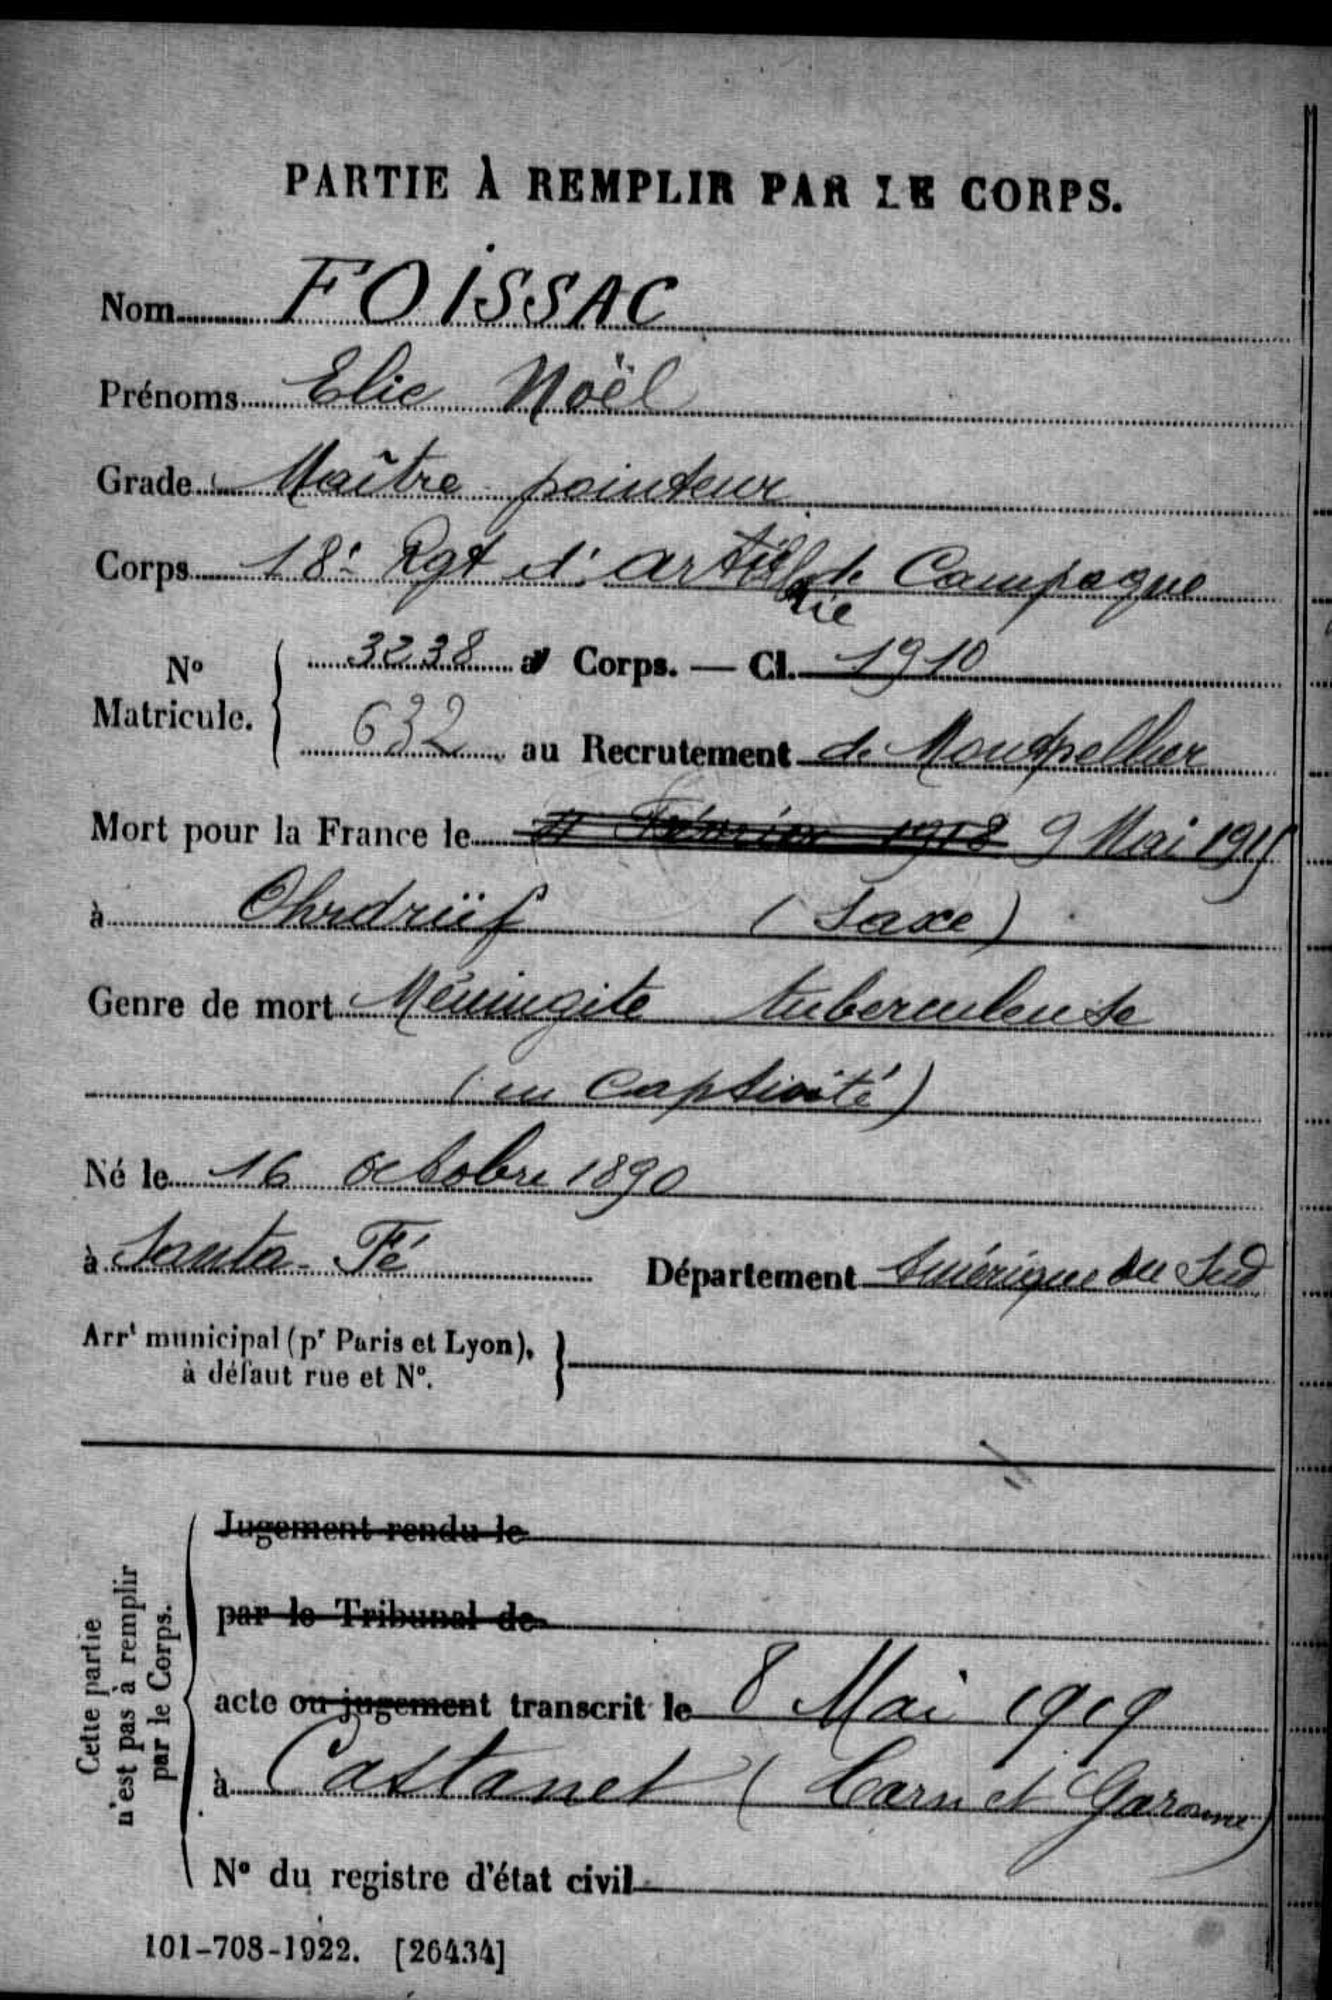 PARTIE À REMPLIR PAR LE CORPS.
Nom FOISSAC
Prénoms Elie Noël
Grade Maître pointeur
Corps 18e Rgt d'artillerie de Campagne
No Matricule. 3238 au Corps. — Cl. 1910
632 au Recrutement de Montpellier
Mort pour la France le 11 Février 1918 9 Mai 1915
à Ohrdrüf (Saxe)
Genre de mort Méningite tuberculeuse
(en captivité)
Né le 16 octobre 1890
à Santa-Fé Département Amérique du Sud
Arrt municipal (pr Paris et Lyon),
à défaut rue et No.
Cette partie
n'est pas à remplir
par le Corps.
Jugement rendu le
par le Tribunal de
acte ou jugement transcrit le 8 Mai 1919
à Castanet (Tarn et Garonne)
No du registre d'état civil
101-708-1922. [26434]